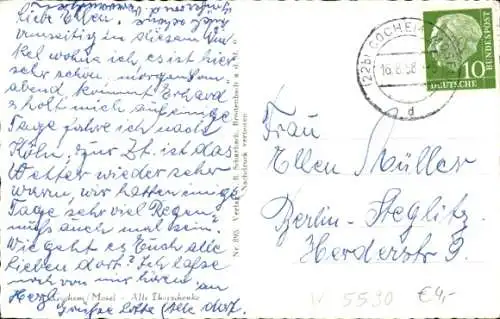 liebe Ellen.
umseitig in diesem Win-
kel wohne ich, es ist hier
sehr schön, morgen
abend kommt Erhard
holt mich auf einige
Tage fahre ich nach
Köln, zur Zt. ist das
Wetter wieder sehr
warm, wir hatten einige
Tage sehr viel Regen,
muß auch mal sein.
Wie geht es Euch alle
lieben dort? Ich lasse
noch von mir hören
Herzl.
Grüße Lotte
Cochem/Mosel - Alte Thorschenke
Nr. 890 Verlag
Nachdruck verboten
(22b) COCHEM
16.8.58
d
10
DEUTSCHE
BUNDESPOST
Frau
Ellen Müller
Berlin-Steglitz
Herderstr 9.
5530 €4,-